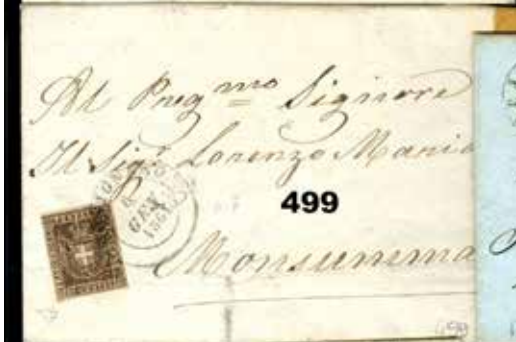 Al Preg.mo Signore
Il Sig. Lorenzo Mania
GEN
499
Monsumma